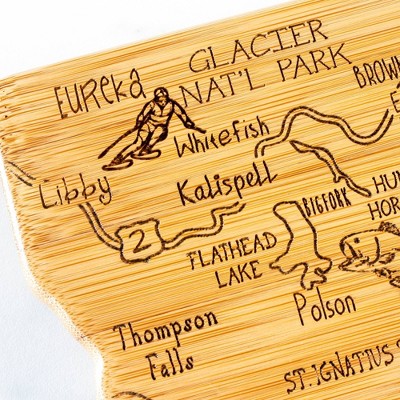 GLACIER
NAT'L PARK
EUREKA
Whitefish
Libby
Kalispell
2
BIGFORK
FLATHEAD
LAKE
Polson
Thompson
Falls
ST. IGNATIUS